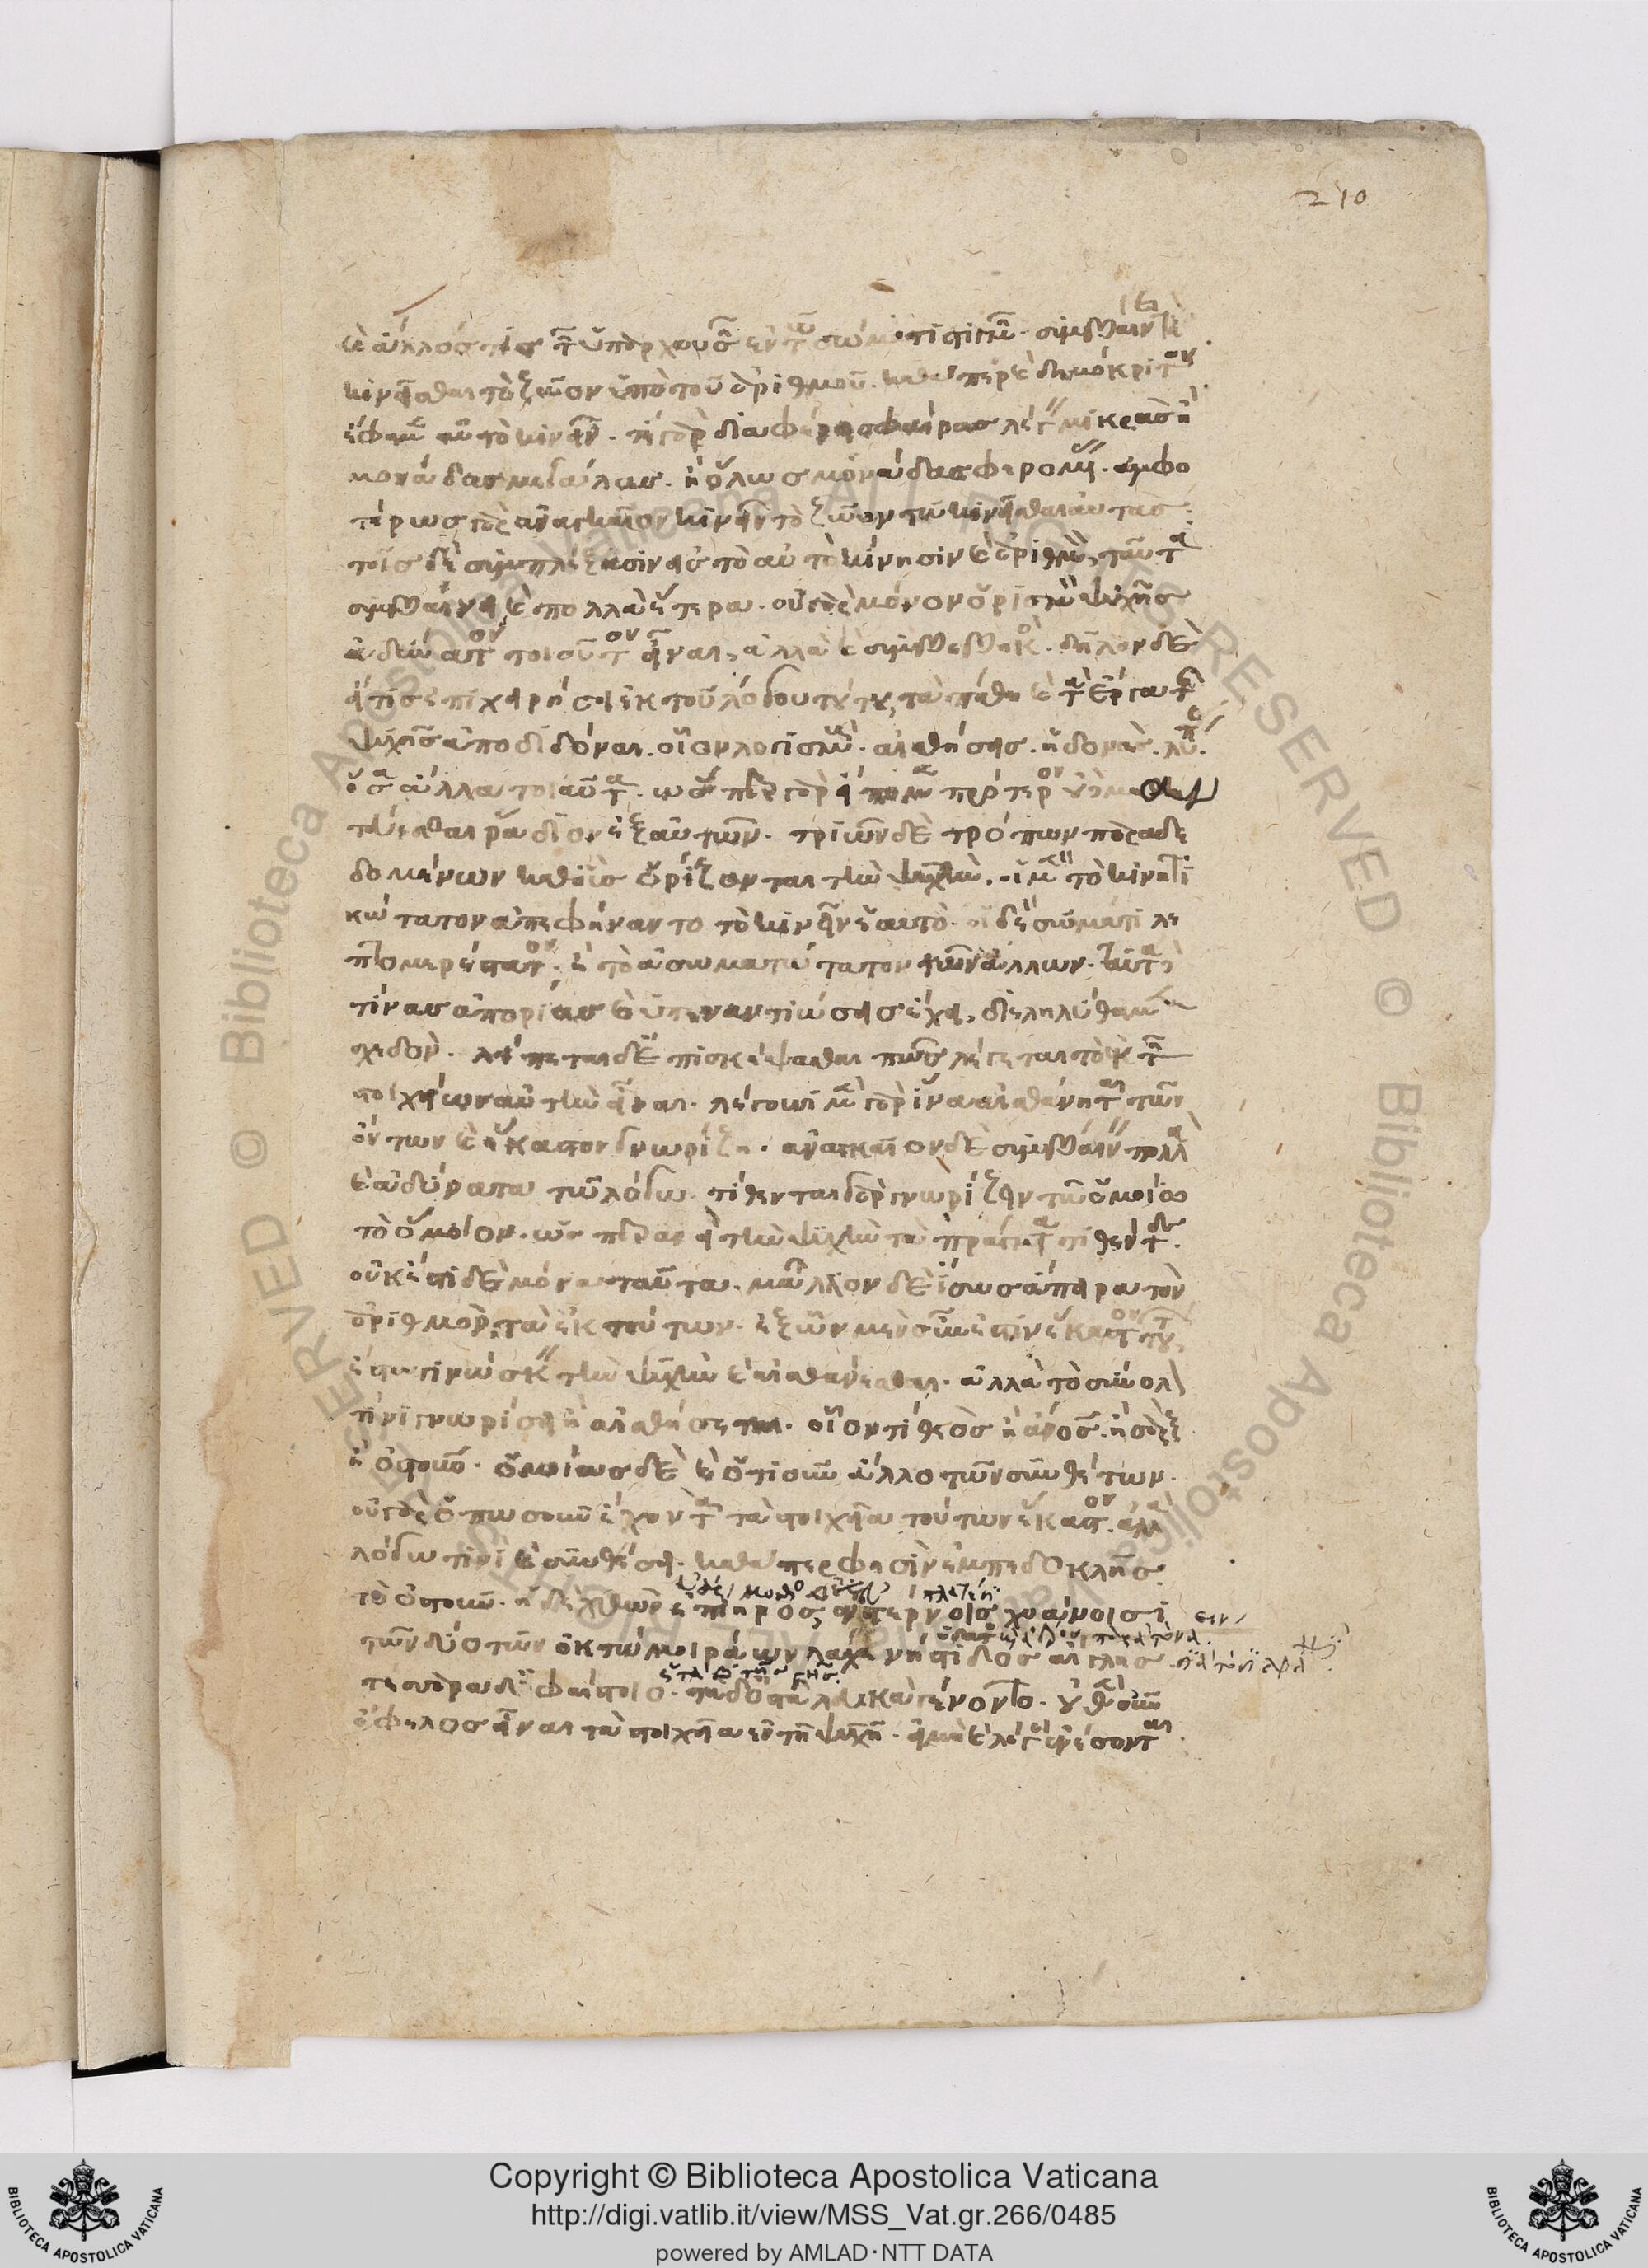 210
καὶ ἄλλος τίς τῶν ὑπαρχουσῶν ἐν τῷ σώματι στιγμῶν. συμβαίνει
κινεῖσθαι τὸ ζῶον ὑπὸ τοῦ ἀριθμοῦ. καθάπερ καὶ δημόκριτον
ἔφαμεν αὐτὸ κινεῖν. τί γὰρ διαφέρει σφαίρας λέγειν μικρὰς ἢ
μονάδας μεγάλας. ἢ ὅλως μονάδας φερομένας. ἀμφο
τέρως γὰρ ἀναγκαῖον κινεῖν τὸ ζῶον τῷ κινεῖσθαι αὐτάς.
τοῖς δὲ συμπλέξασιν εἰς τὸ αὐτὸ κίνησιν καὶ ἀριθμὸν, ταῦτα
συμβαίνει καὶ πολλὰ ἕτερα. οὐ γὰρ μόνον ὁρισμὸν ψυχῆς
ἀδύνατον τοιοῦτον εἶναι, ἀλλὰ καὶ συμβεβηκός. δῆλον δὲ
εἴ τις ἐπιχειρήσει ἐκ τοῦ λόγου τούτου τὰ πάθη καὶ τὰ ἔργα τῆς
ψυχῆς ἀποδιδόναι. οἷον λογισμούς. αἰσθήσεις. ἡδονάς. λύπας.
ὅσα ἄλλα τοιαῦτα. ὥσπερ γὰρ εἴπομεν πρότερον οὐδὲ μαν
τεύσασθαι ῥάδιον ἐξ αὐτῶν. τριῶν δὲ τρόπων παραδε
δομένων καθ' οὓς ὁρίζονται τὴν ψυχήν. οἱ μὲν τὸ κινητι
κώτατον ἀπεφήναντο τὸ κινεῖν ἑαυτό. οἱ δὲ σῶμά τι λε
πτομερέστατον. ἢ τὸ ἀσωματώτατον τῶν ἄλλων. ταῦτα δὲ
τίνας ἀπορίας καὶ ὑπεναντιώσεις ἔχει, διεληλύθαμεν
σχεδόν. λείπεται δὲ ἐπισκέψασθαι πῶς λέγεται τὸ ἐκ τῶν
στοιχείων αὐτὴν εἶναι. λέγουσι μὲν γὰρ ἵνα αἰσθάνηται τῶν
ὄντων καὶ ἕκαστον γνωρίζῃ. ἀναγκαῖον δὲ συμβαίνειν πολλὰ
καὶ ἀδύνατα τῷ λόγῳ. τίθενται γὰρ γνωρίζειν τῷ ὁμοίῳ
τὸ ὅμοιον. ὥσπερ ἂν εἰ τὴν ψυχὴν τὰ πράγματα τιθέντες.
οὐκ ἔστι δὲ μόνα ταῦτα. μᾶλλον δὲ ἴσως ἄπειρα τὸν
ἀριθμὸν, τὰ ἐκ τούτων. ἐξ ὧν μὲν οὖν ἐστιν ἕκαστον τούτων,
ἔστω γινώσκειν τὴν ψυχὴν καὶ αἰσθάνεσθαι. ἀλλὰ τὸ σύνολον
τίνι γνωρίσει ἢ αἰσθήσεται. οἷον τί θεὸς ἢ ἄνθρωπος. ἢ σὰρξ
ἢ ὀστοῦν. ὁμοίως δὲ καὶ ὁτιοῦν ἄλλο τῶν συνθέτων.
οὐ γὰρ ὁπωσοῦν ἔχοντα τὰ στοιχεῖα τούτων ἕκαστον. ἀλλὰ
λόγῳ τινὶ καὶ συνθέσει. καθάπερ φησὶν ἐμπεδοκλῆς
τὸ ὀστοῦν. ἡ δὲ χθὼν ἐπίηρος εὐστέρνοις χοάνοισι
τῶν δύο τῶν ὀκτὼ μοιράων λάχε νήστιδος αἴγλης
τέσσαρα δ' ἡφαίστοιο. τὰ δ' ὀστέα λευκὰ γένοντο. οὐθὲν οὖν
ὄφελος εἶναι τὰ στοιχεῖα ἐν τῇ ψυχῇ. εἰ μὴ καὶ λόγοι ἐνέσονται
Copyright © Biblioteca Apostolica Vaticana
http://digi.vatlib.it/view/MSS_Vat.gr.266/0485
powered by AMLAD·NTT DATA
BIBLIOTECA APOSTOLICA VATICANA
BIBLIOTECA APOSTOLICA VATICANA